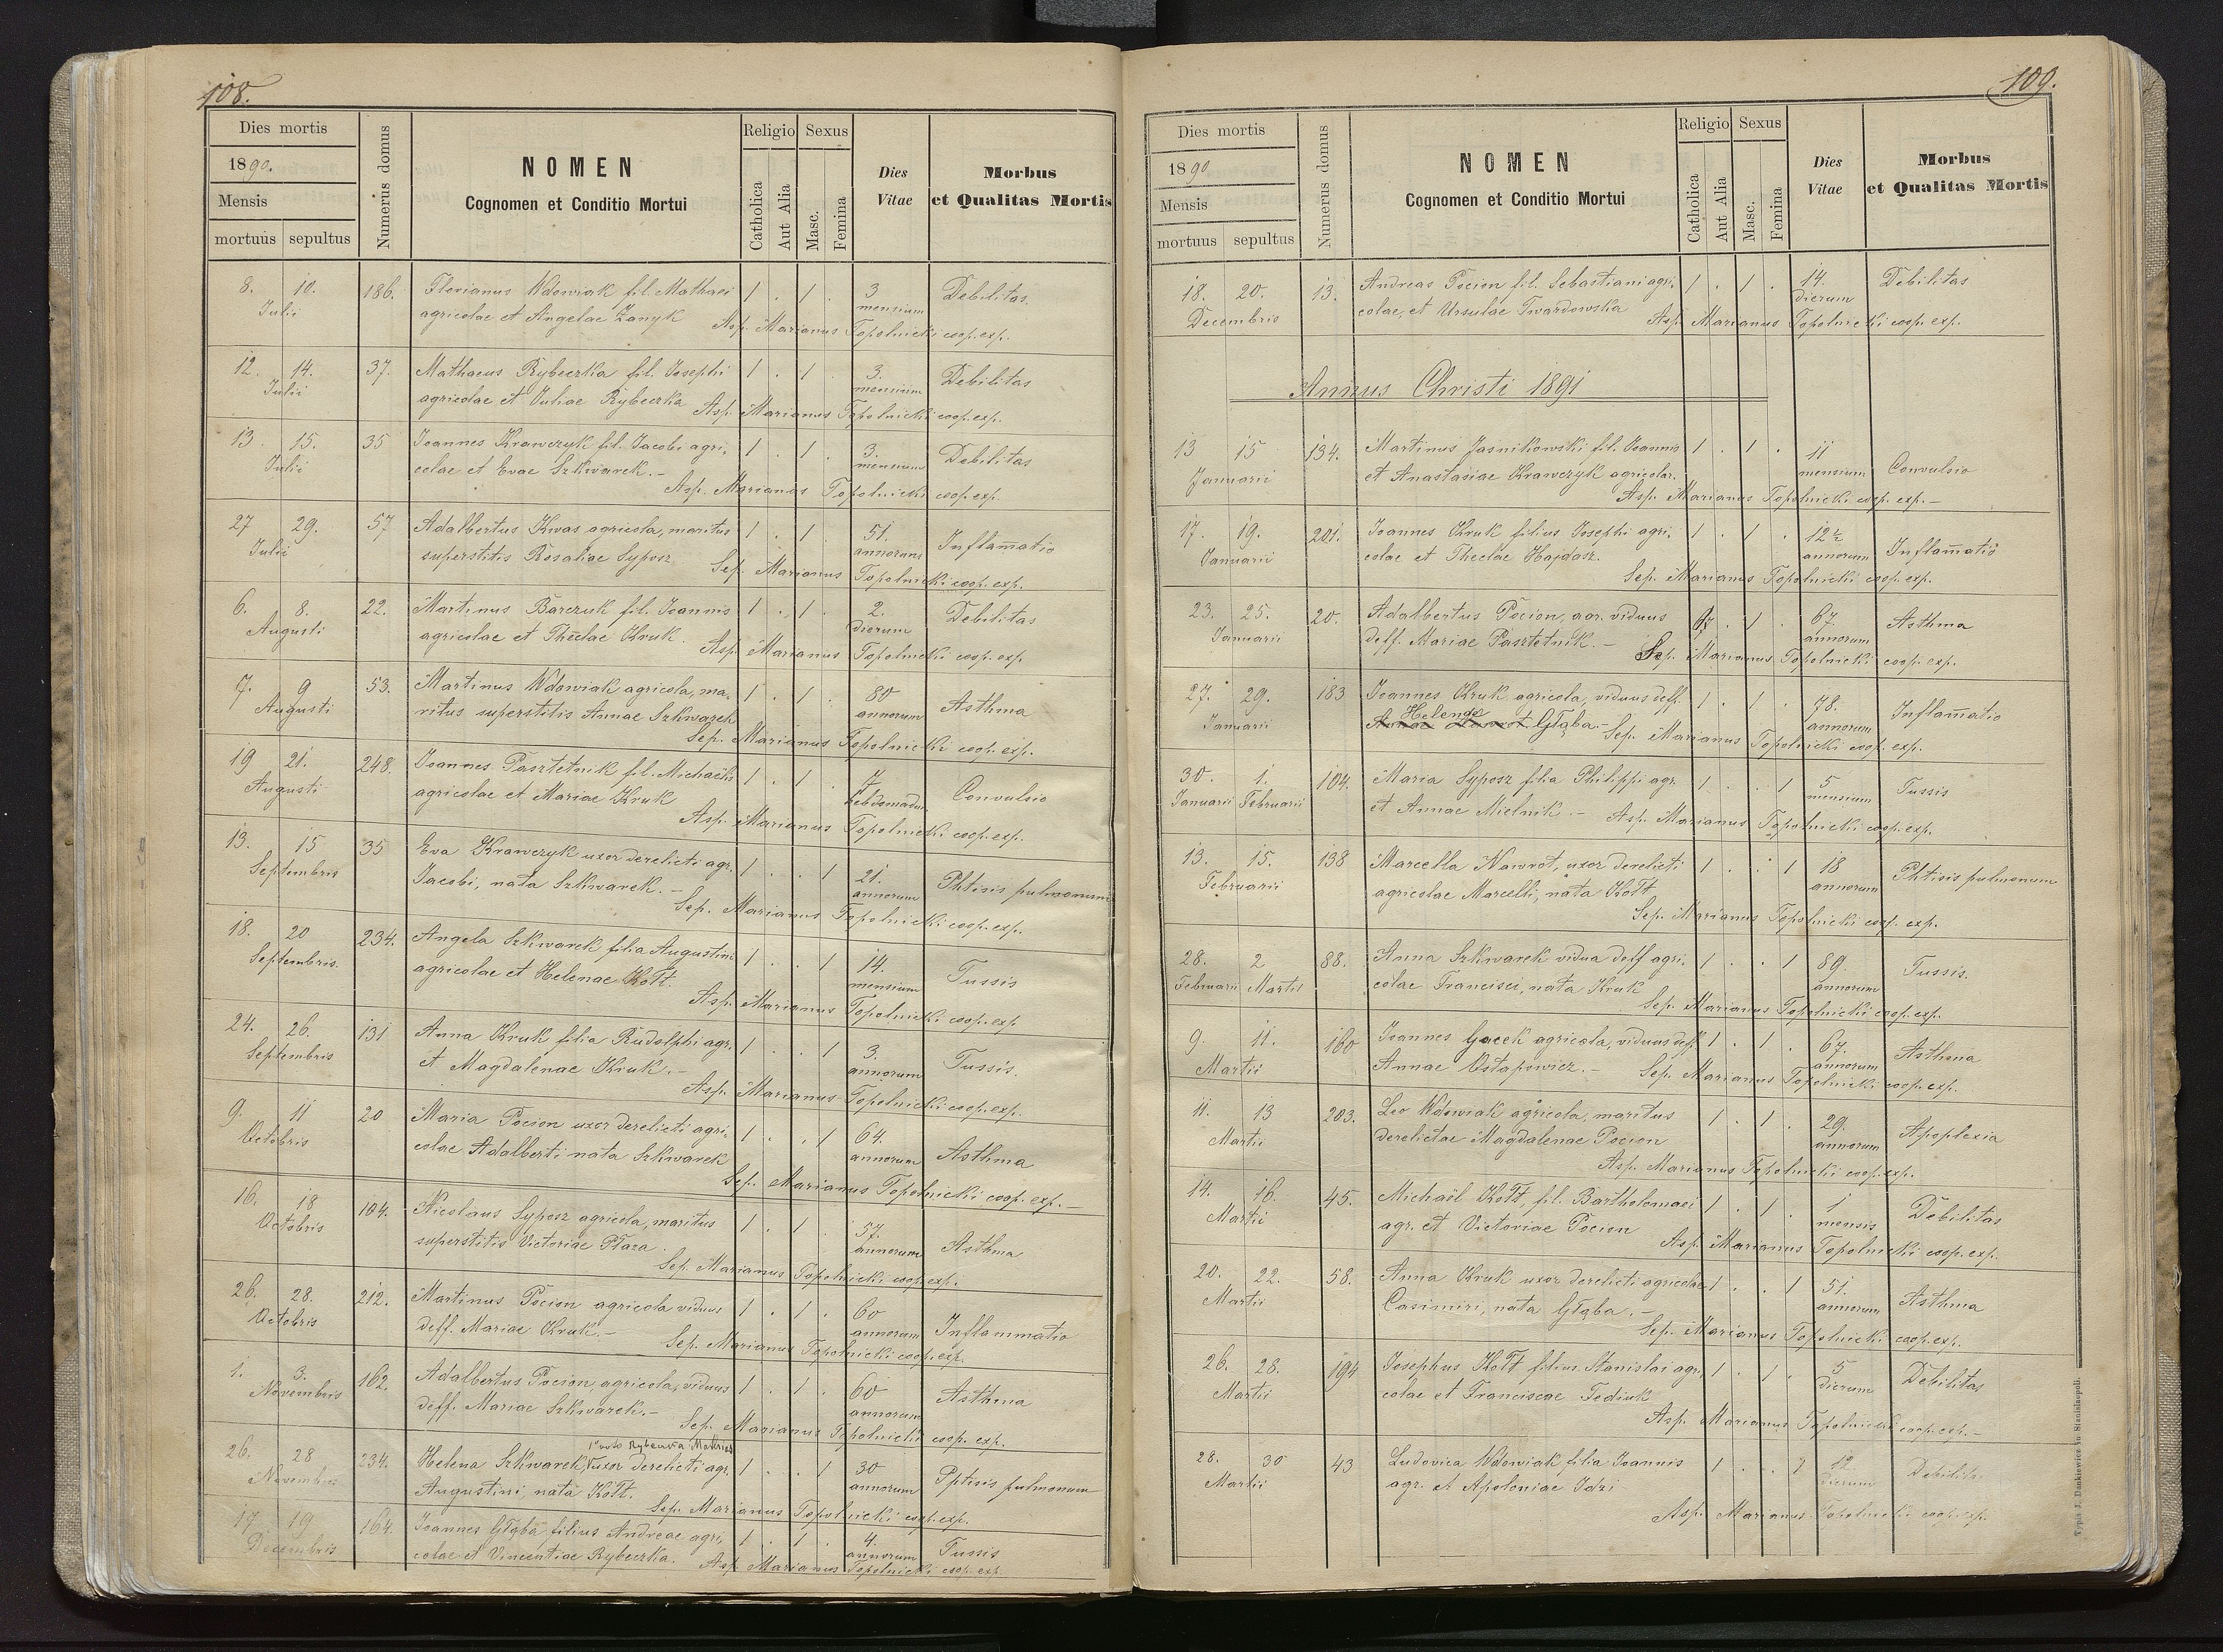 108.
Dies mortis
1890.
Mensis
mortuus sepultus
Numerus domus
NOMEN
Cognomen et Conditio Mortui
Religio
Catholica
Aut Alia
Sexus
Masc.
Femina
Dies
Vitae
Morbus
et Qualitas Mortis
8. 10. 186. Florianus Wdowiak fil. Mathaei 1 . 1 . 3 Debilitas
Julii agricolae et Angelae Zanyk mensium
Asp. Marianus Topolnicki coop. exp.
12. 14. 37. Mathaeus Rybeczka fil. Josephi 1 . 1 . 3. Debilitas
Julii agricolae et Juliae Rybeczka mensium
Asp. Marianus Topolnicki coop. exp.
13. 15. 35 Joannes Krawczyk fil. Jacobi agri- 1 . 1 . 3. Debilitas
Julii colae et Evae Szkwarek.- mensium
Asp. Marianus Topolnicki coop. exp.
27 29. 57 Adalbertus Kwas agricola, maritus 1 . 1 51. Inflam̄atio
Julii superstitis Rosaliae Syposz annorum
Sep. Marianus Topolnicki coop. exp.
6. 8. 22. Martinus Barczuk fil. Joannis 1 . 1 . 2. Debilitas
Augusti agricolae et Theclae Kruk. dierum
Asp. Marianus Topolnicki coop. exp.
7. 9 53. Martinus Wdowiak agricola, ma- 1 . 1 . 80 Asthma
Augusti ritus superstitis Annae Szkwarek annorum
Sep. Marianus Topolnicki coop. exp.
19 21. 248. Joannes Pasztetnik fil. Michaëlis 1 . 1 . 7 Convulsio
Augusti agricolae et Mariae Kruk hebdomadum
Asp. Marianus Topolnicki coop. exp.
13. 15 35 Eva Krawczyk uxor derelicti agr. 1 . . 1 21. Phtisis pulmonum
Septembris Jacobi, nata Szkwarek.- annorum
Sep. Marianus Topolnicki coop. exp.
18. 20 234. Angela Szkwarek filia Augustini 1 . . 1 14. Tussis
Septembris. agricolae et Helenae Kott. mensium
Asp. Marianus Topolnicki coop. exp
24. 26. 131 Anna Kruk filia Rudolphi agr. 1 . . 1 3. Tussis.
Septembris et Magdalenae Kruk.- annorum
Asp. Marianus Topolnicki coop. exp.
9. 11 20 Maria Pocion uxor derelicti agri- 1 . . 1 64. Asthma
Octobris colae Adalberti nata Szkwarek annorum
Sep. Marianus Topolnicki coop. exp.-
16. 18 104. Nicolaus Syposz agricola, maritus 1 . 1 . 57. Asthma
Octobris superstitis Victoriae Płaza. annorum
Sep. Marianus Topolnicki coop. exp.
26. 28. 212. Martinus Pocion agricola viduus 1 . 1 . 60 Inflammatio
Octobris deff. Mariae Kruk.- annorum
Sep. Marianus Topolnicki coop. exp.
1. 3. 162. Adalbertus Pocion, agricola, viduus 1 . 1 . 60 Asthma
Novembris deff. Mariae Szkwarek.- annorum
Sep. Marianus Topolnicki coop. exp.
1° voto Rybeczka
26. 28 234. Helena Szkwarek, uxor derelicti agr. 1 . . 1 30 Pptisis pulmonum
Novembris Augustini, nata Kott. annorum
Sep. Marianus Topolnicki coop. exp.
17 19 164. Joannes Głąba filius Andreae agri- 1 . 1 . 4. Tussis
Decembris colae et Vincentiae Rybeczka. annorum
Asp. Marianus Topolnicki coop. exp.
109.
Dies mortis
1890
Mensis
mortuus sepultus
Numerus domus
NOMEN
Cognomen et Conditio Mortui
Religio
Catholica
Aut Alia
Sexus
Masc.
Femina
Dies
Vitae
Morbus
et Qualitas Mortis
18. 20. 13. Andreas Pocion fil. Sebastiani agri- 1 . 1 . 14. Debilitas
Decembris colae, et Ursulae Twardowska dierum
Asp. Marianus Topolnicki coop. exp.
Annus Christi 1891
13 15 134. Martinus Jasnikowski fil. Joannis 1 . 1 . 11 Convulsio
Januarii et Anastasiae Krawczyk agricolar. mensium
Asp. Marianus Topolnicki coop. exp.-
17. 19. 201. Joannes Kruk filius Josephi agri- 1 . 1 . 12½ Inflam̄atio
Januarii colae et Theclae Hajdasz. annorum
Sep. Marianus Topolnicki coop. exp.
23. 25. 20. Adalbertus Pocion, agr. viduus 1 . 1 . 67. Asthma
Januarii deff. Mariae Pasztetnik.- annorum
Sep. Marianus Topolnicki coop. exp.
27. 29. 183 Joannes Kruk agricola, viduus deff. 1 . 1 . 78. Inflam̄atio
Januarii Helenae Głąba.- annorum
Sep. Marianus Topolnicki coop. exp.
30. 1. 104. Maria Syposz filia Philippi agr. 1 . . 1 5 Tussis
Januarii Februarii et Annae Mielnik.- mensium
Asp. Marianus Topolnicki coop. exp.
13. 15. 138 Marcella Nawrot, uxor derelicti 1 . . 1 18 Phtisis pulmonum
Februarii agricolae Marcelli, nata Kott annorum
Sep. Marianus Topolnicki coop. exp.
28. 2 88. Anna Szkwarek vidua deff agri- 1 . . 1 89. Tussis.
Februarii Martii colae Francisci, nata Kruk annorum
Sep. Marianus Topolnicki coop. exp.
9. 11. 160 Joannes Gacek agricola, viduus deff. 1 . 1 . 67. Asthma
Martii Annae Ostapowicz.- annorum
Sep. Marianus Topolnicki coop. exp.
11. 13 203. Leo Wdowiak agricola, maritus 1 . 1 . 29. Apoplexia
Martii derelictae Magdalenae Pocion annorum
Asp. Marianus Topolnicki coop. exp.
14. 16. 45. Michaël Kott, fil. Bartholomaei 1 . 1 . 1 Debilitas
Martii agr. et Victoriae Pocion mensis
Asp. Marianus Topolnicki coop. exp.
20. 22. 58. Anna Kruk uxor derelicti agricolae 1 . . 1 51. Asthma
Martii Casimiri, nata Głąba.- annorum
Sep. Marianus Topolnicki coop. exp.
26. 28. 194 Josephus Kott filius Stanislai agri- 1 . 1 . 5 Debilitas
Martii colae et Franciscae Fediuk dierum
Asp. Marianus Topolnicki coop. exp.-
28. 30 43 Ludovica Wdowiak filia Joannis 1 . . 1 12. Debilitas
Martii agr. et Apoloniae Idzi dierum
Asp. Marianus Topolnicki coop. exp.
Typis J. Dankiewicz in Stanislaopoli.